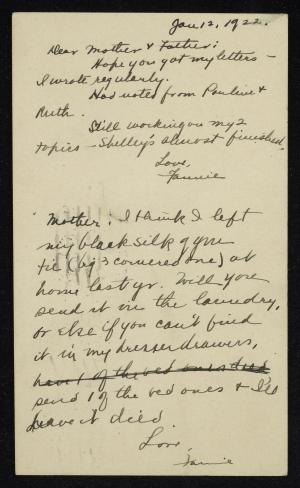 Jan 12, 1922.
Dear Mother & Father:
Hope you got my letters -
I wrote regularly.
Had notes from Pauline &
Ruth.
Still working on my 2
topics - Shelley's almost finished.
Love,
Fannie
Mother: I think I left
my black silk gym
tie (big 3 cornered one) at
home last yr. Will you
send it in the laundry,
or else if you can't find
it in my dresser drawers,
have 1 of the red ones died
send 1 of the red ones & I'll
have it died.
Love,
Fannie